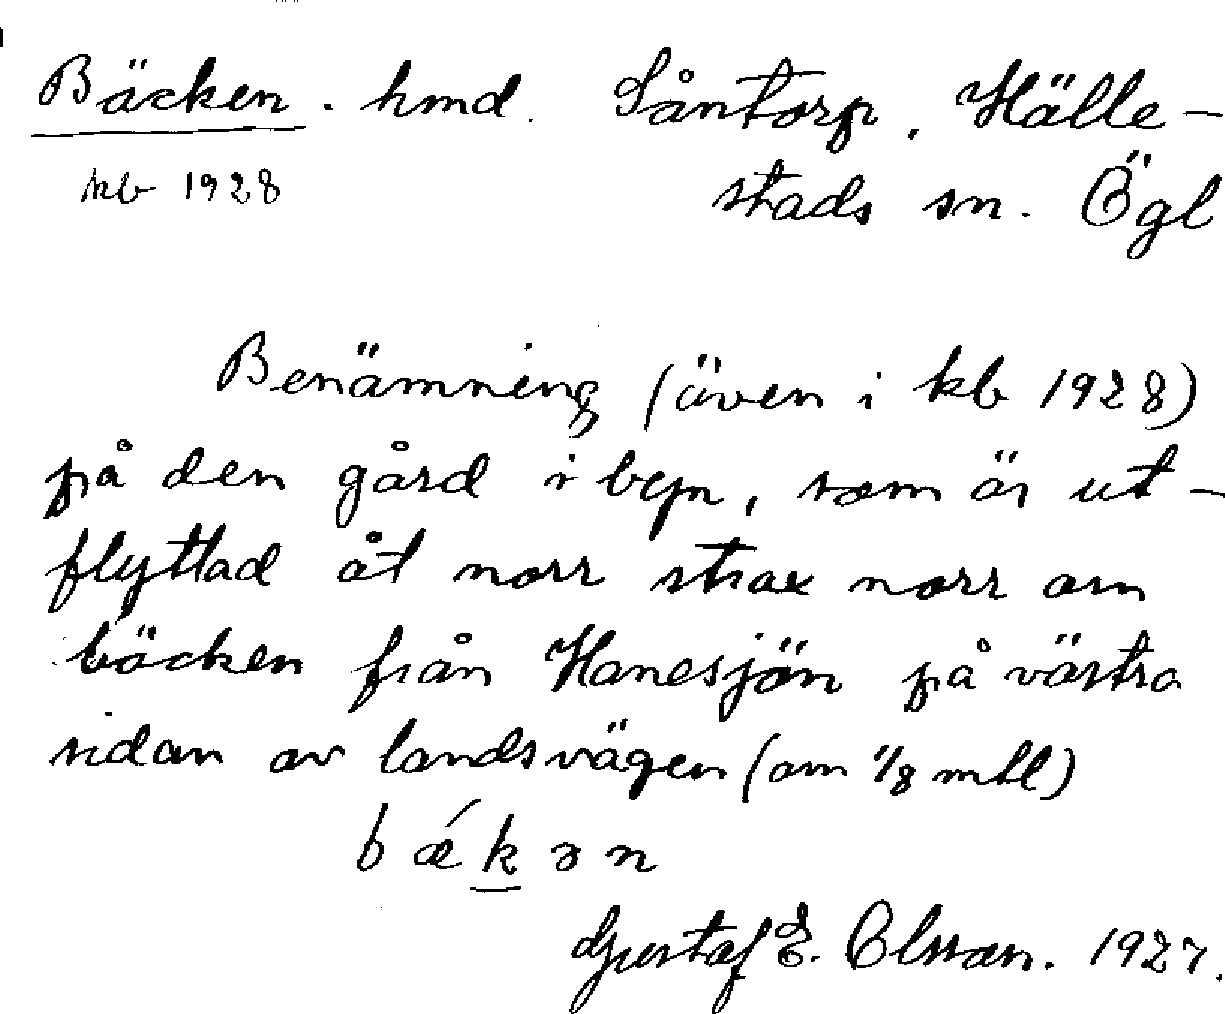 Bäcken. hmd. Såntorp, Hälle-
kb 1928 stads sn. Ögl
Benämning (även i kb 1928)
på den gård i byn, som är ut-
flyttad åt norr strax norr om
bäcken från Hanesjön på västra
sidan av landsvägen (om 1/8 mtl)
bǽkən
Gustaf E. Olsson. 1927.